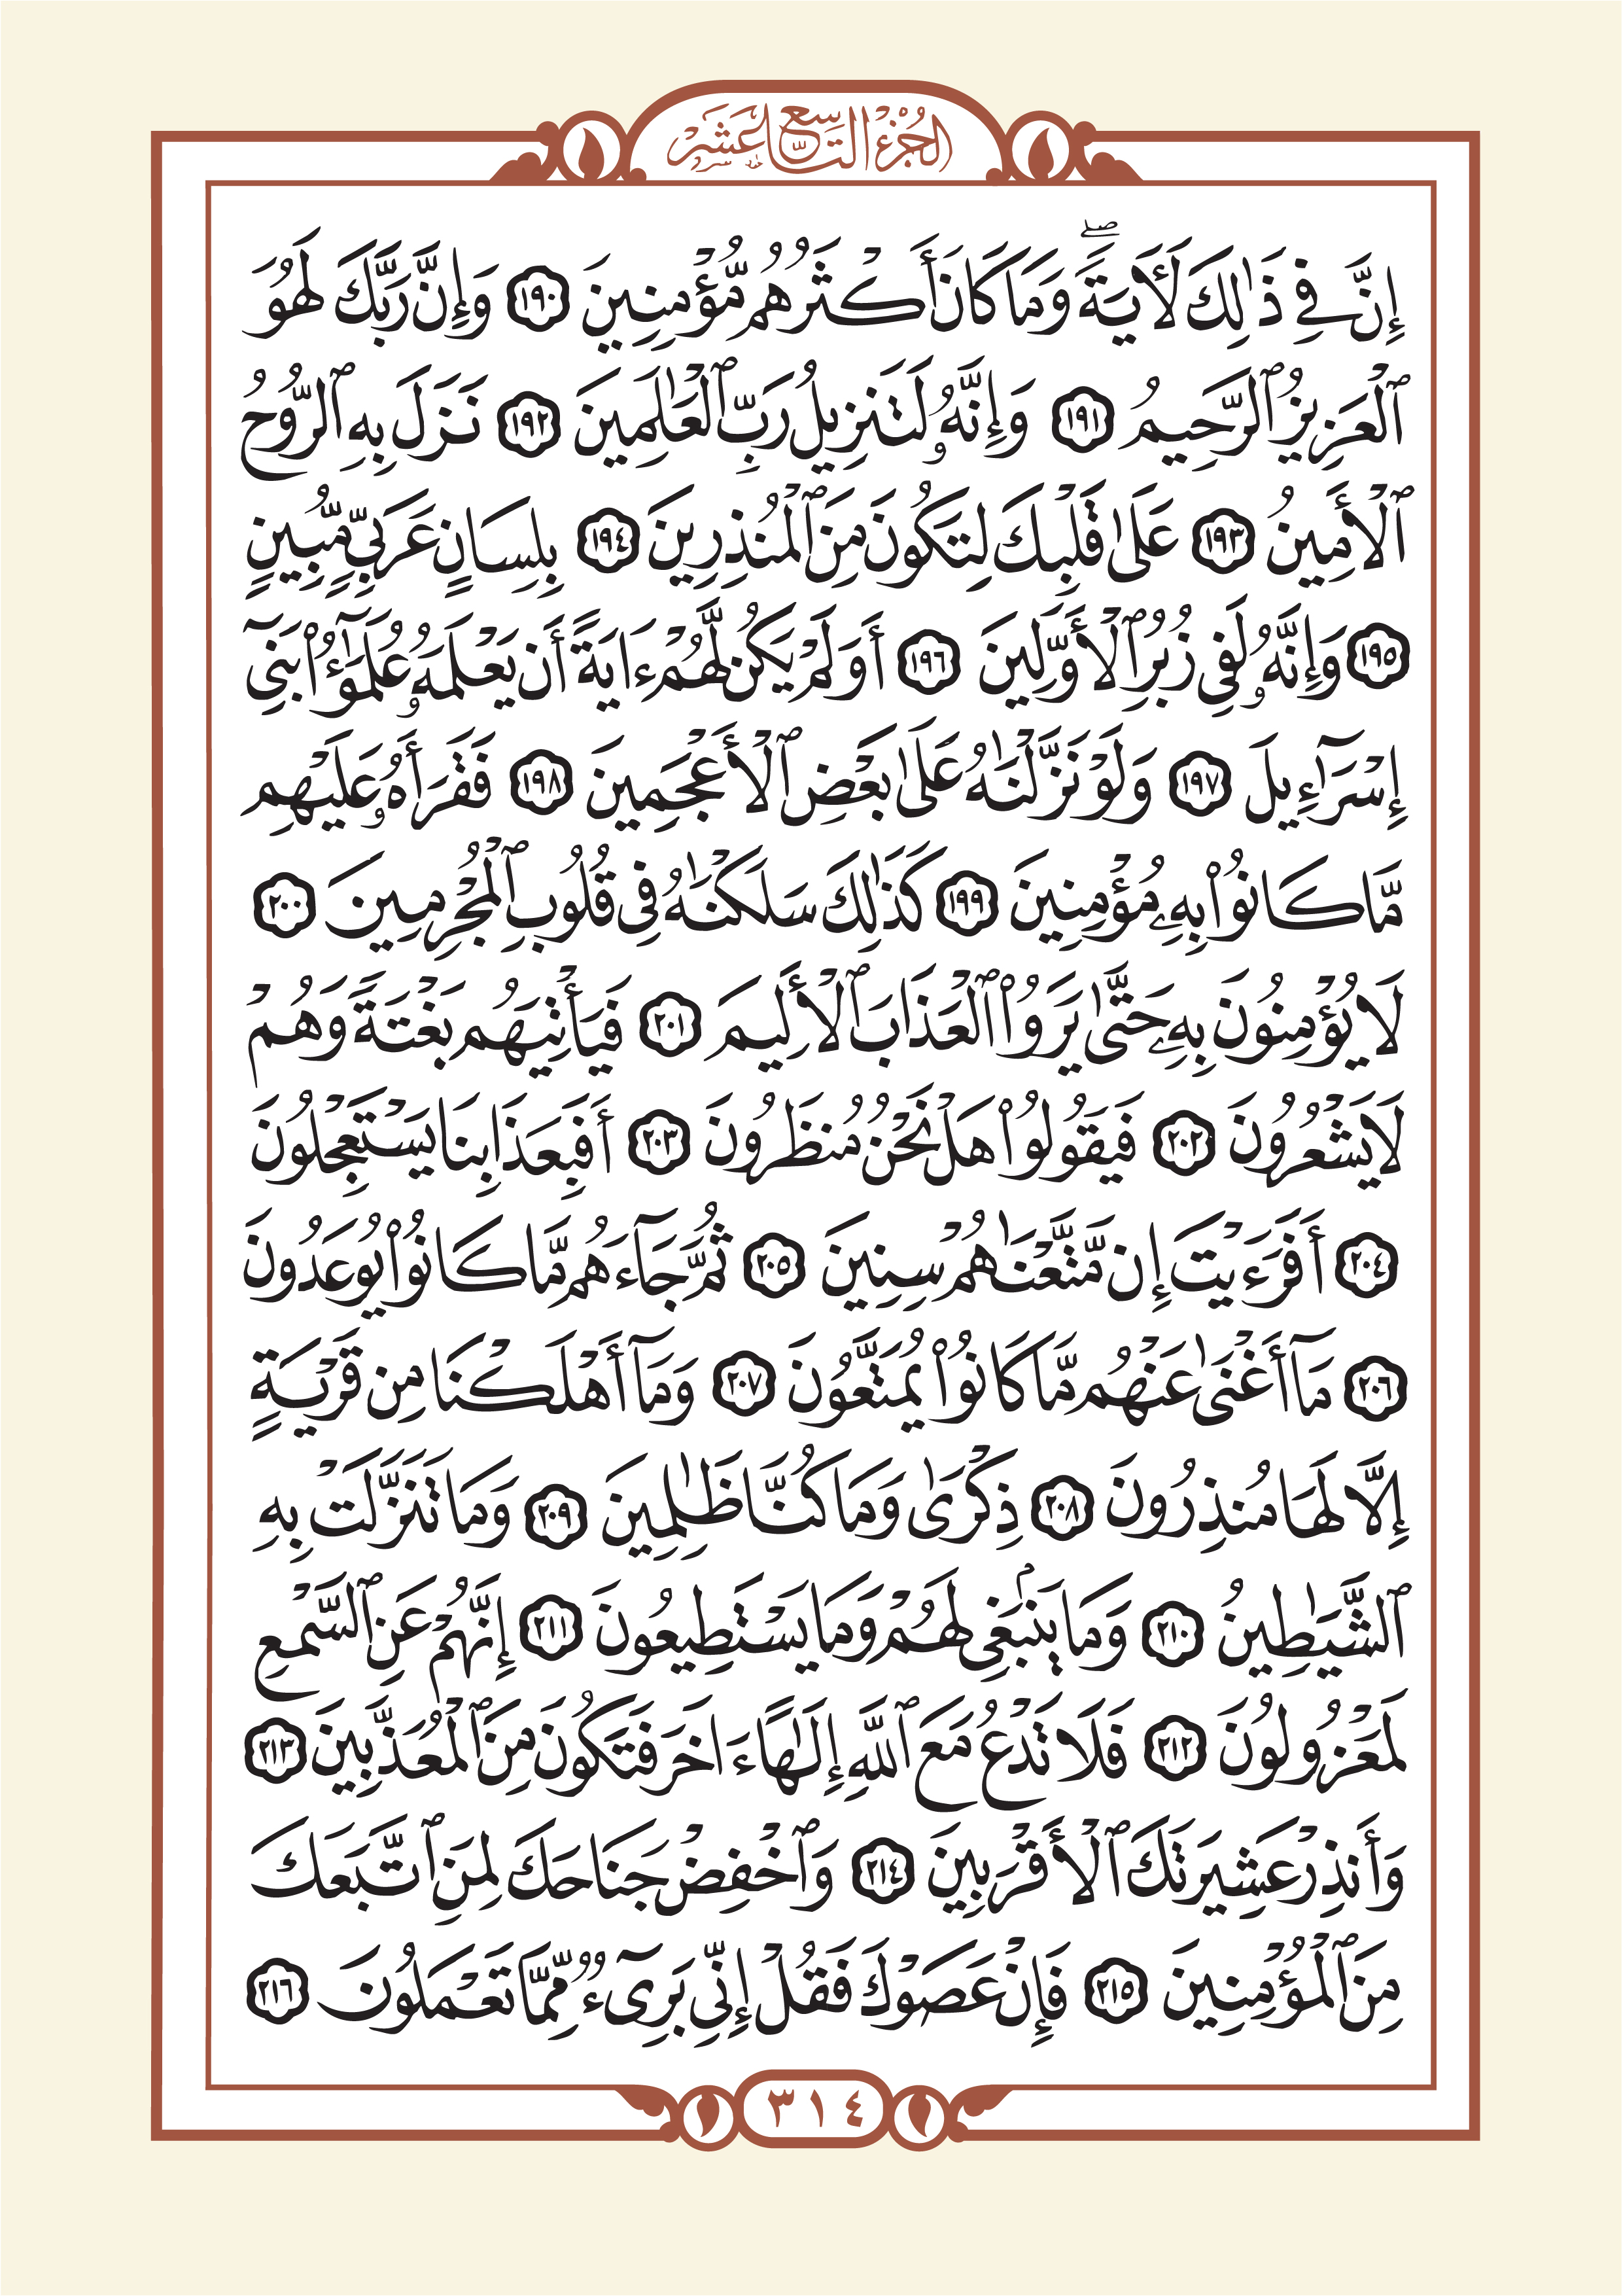 الجزء التاسع عشر
إِنَّ فِي ذَٰلِكَ لَأٓيَةٗۖ وَمَا كَانَ أَكۡثَرُهُم مُّؤۡمِنِينَ ١٩٠ وَإِنَّ رَبَّكَ لَهُوَ
ٱلۡعَزِيزُ ٱلرَّحِيمُ ١٩١ وَإِنَّهُۥ لَتَنزِيلُ رَبِّ ٱلۡعَٰلَمِينَ ١٩٢ نَزَلَ بِهِ ٱلرُّوحُ
ٱلۡأَمِينُ ١٩٣ عَلَىٰ قَلۡبِكَ لِتَكُونَ مِنَ ٱلۡمُنذِرِينَ ١٩٤ بِلِسَانٍ عَرَبِيّٖ مُّبِينٖ
١٩٥ وَإِنَّهُۥ لَفِي زُبُرِ ٱلۡأَوَّلِينَ ١٩٦ أَوَلَمۡ يَكُن لَّهُمۡ ءَايَةً أَن يَعۡلَمَهُۥ عُلَمَٰٓؤُاْ بَنِيٓ
إِسۡرَٰٓءِيلَ ١٩٧ وَلَوۡ نَزَّلۡنَٰهُ عَلَىٰ بَعۡضِ ٱلۡأَعۡجَمِينَ ١٩٨ فَقَرَأَهُۥ عَلَيۡهِم
مَّا كَانُواْ بِهِۦ مُؤۡمِنِينَ ١٩٩ كَذَٰلِكَ سَلَكۡنَٰهُ فِي قُلُوبِ ٱلۡمُجۡرِمِينَ ٢٠٠
لَا يُؤۡمِنُونَ بِهِۦ حَتَّىٰ يَرَوُاْ ٱلۡعَذَابَ ٱلۡأَلِيمَ ٢٠١ فَيَأۡتِيَهُم بَغۡتَةٗ وَهُمۡ
لَا يَشۡعُرُونَ ٢٠٢ فَيَقُولُواْ هَلۡ نَحۡنُ مُنظَرُونَ ٢٠٣ أَفَبِعَذَابِنَا يَسۡتَعۡجِلُونَ
٢٠٤ أَفَرَءَيۡتَ إِن مَّتَّعۡنَٰهُمۡ سِنِينَ ٢٠٥ ثُمَّ جَآءَهُم مَّا كَانُواْ يُوعَدُونَ
٢٠٦ مَآ أَغۡنَىٰ عَنۡهُم مَّا كَانُواْ يُمَتَّعُونَ ٢٠٧ وَمَآ أَهۡلَكۡنَا مِن قَرۡيَةٍ
إِلَّا لَهَا مُنذِرُونَ ٢٠٨ ذِكۡرَىٰ وَمَا كُنَّا ظَٰلِمِينَ ٢٠٩ وَمَا تَنَزَّلَتۡ بِهِ
ٱلشَّيَٰطِينُ ٢١٠ وَمَا يَنۢبَغِي لَهُمۡ وَمَا يَسۡتَطِيعُونَ ٢١١ إِنَّهُمۡ عَنِ ٱلسَّمۡعِ
لَمَعۡزُولُونَ ٢١٢ فَلَا تَدۡعُ مَعَ ٱللَّهِ إِلَٰهًا ءَاخَرَ فَتَكُونَ مِنَ ٱلۡمُعَذَّبِينَ ٢١٣
وَأَنذِرۡ عَشِيرَتَكَ ٱلۡأَقۡرَبِينَ ٢١٤ وَٱخۡفِضۡ جَنَاحَكَ لِمَنِ ٱتَّبَعَكَ
مِنَ ٱلۡمُؤۡمِنِينَ ٢١٥ فَإِنۡ عَصَوۡكَ فَقُلۡ إِنِّي بَرِيٓءٞ مِّمَّا تَعۡمَلُونَ ٢١٦
٣١٤